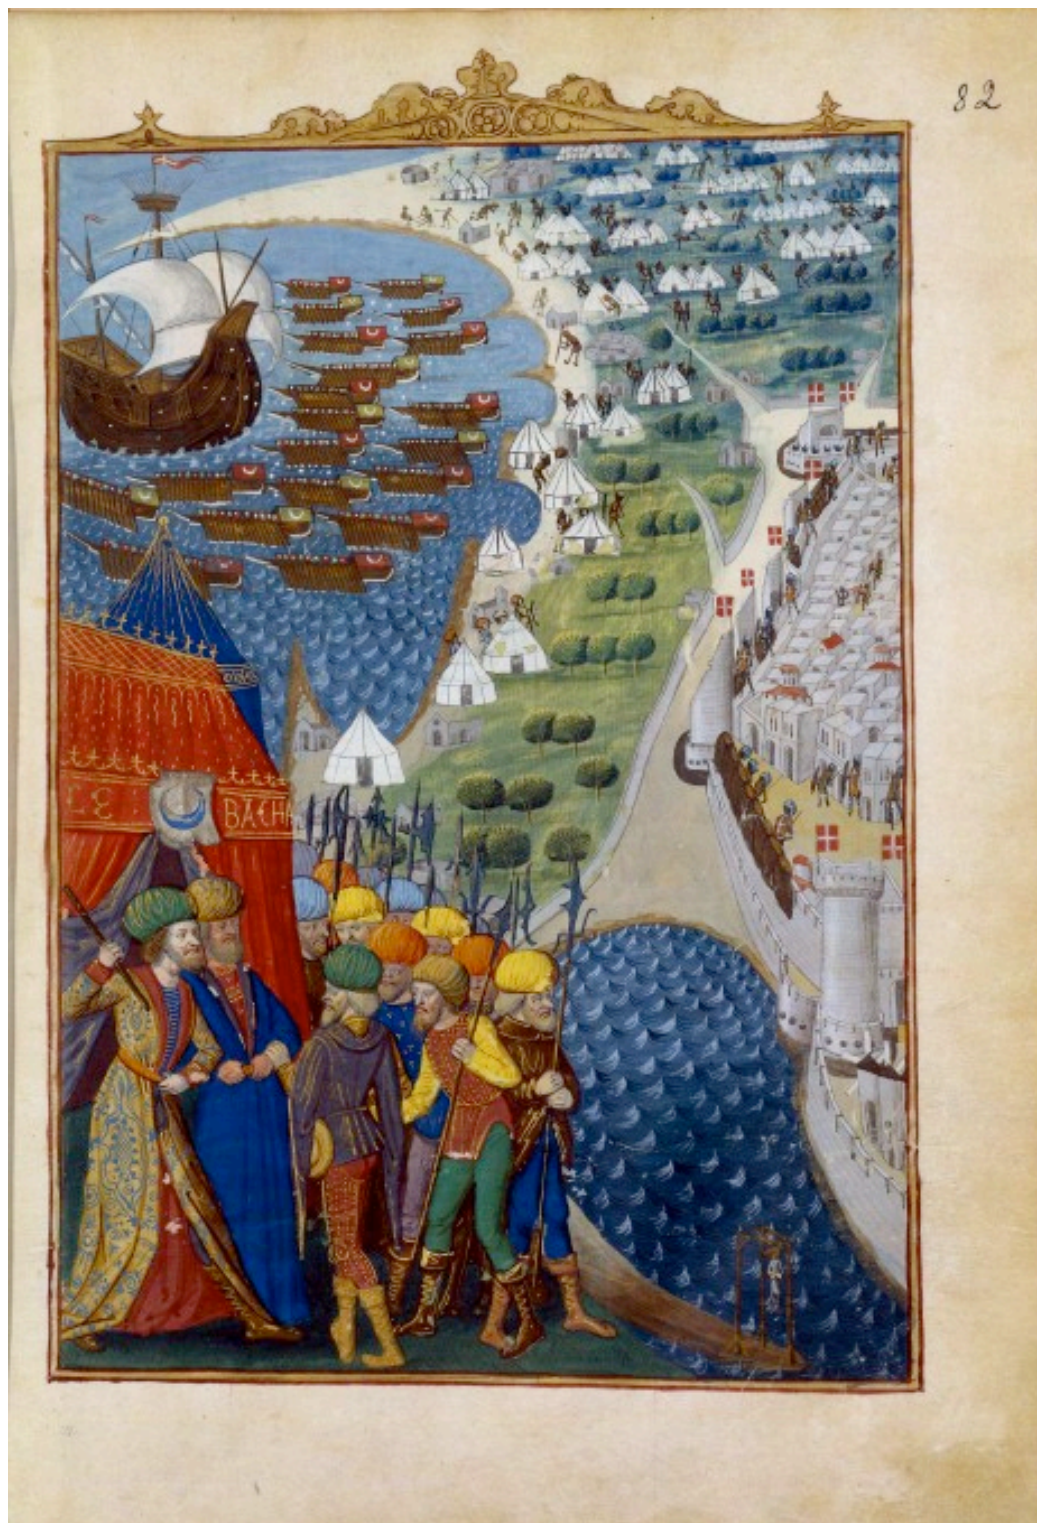 82
LE BACHA